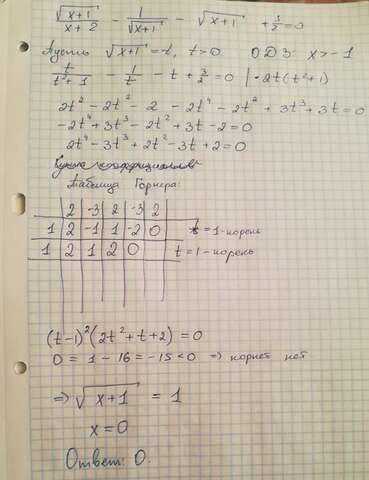 √(x+1)/(x+2) - 1/√(x+1) - √(x+1) + 3/2 = 0
Пусть √(x+1) = t, t>0 ОДЗ: x > -1
t/(t²+1) - 1/t - t + 3/2 = 0 | · 2t(t²+1)
2t² - 2t² - 2 - 2t⁴ - 2t² + 3t³ + 3t = 0
-2t⁴ + 3t³ - 2t² + 3t - 2 = 0
2t⁴ - 3t³ + 2t² - 3t + 2 = 0
Таблица Горнера:
2 -3 2 -3 2
1 2 -1 1 -2 0 t = 1 - корень
1 2 1 2 0 t = 1 - корень
(t-1)²(2t² + t + 2) = 0
D = 1 - 16 = -15 < 0 => корней нет
=> √(x+1) = 1
x = 0
Ответ: 0.